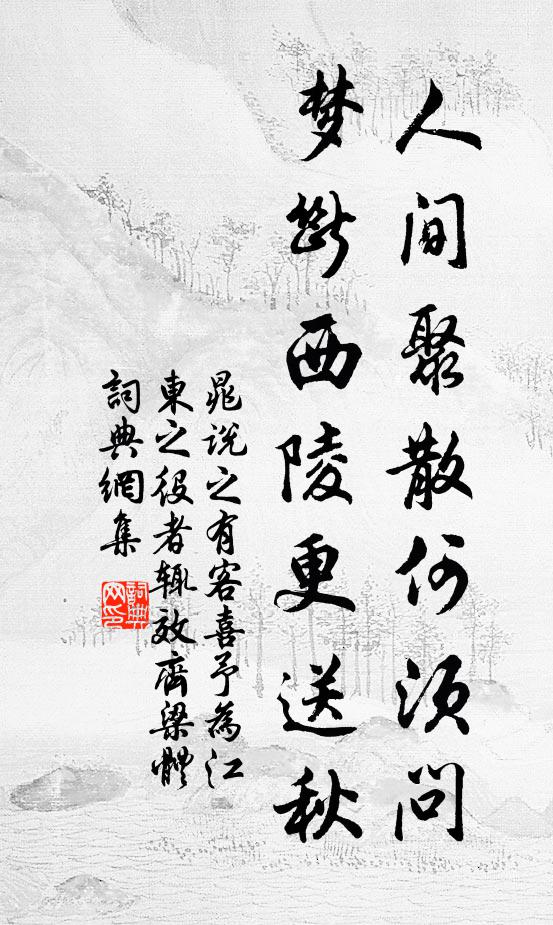 人间聚散何须问
梦断西陵更送秋
晁说之有客喜予為江
東之役者辄效齊梁體
詞典網集
詞典网印